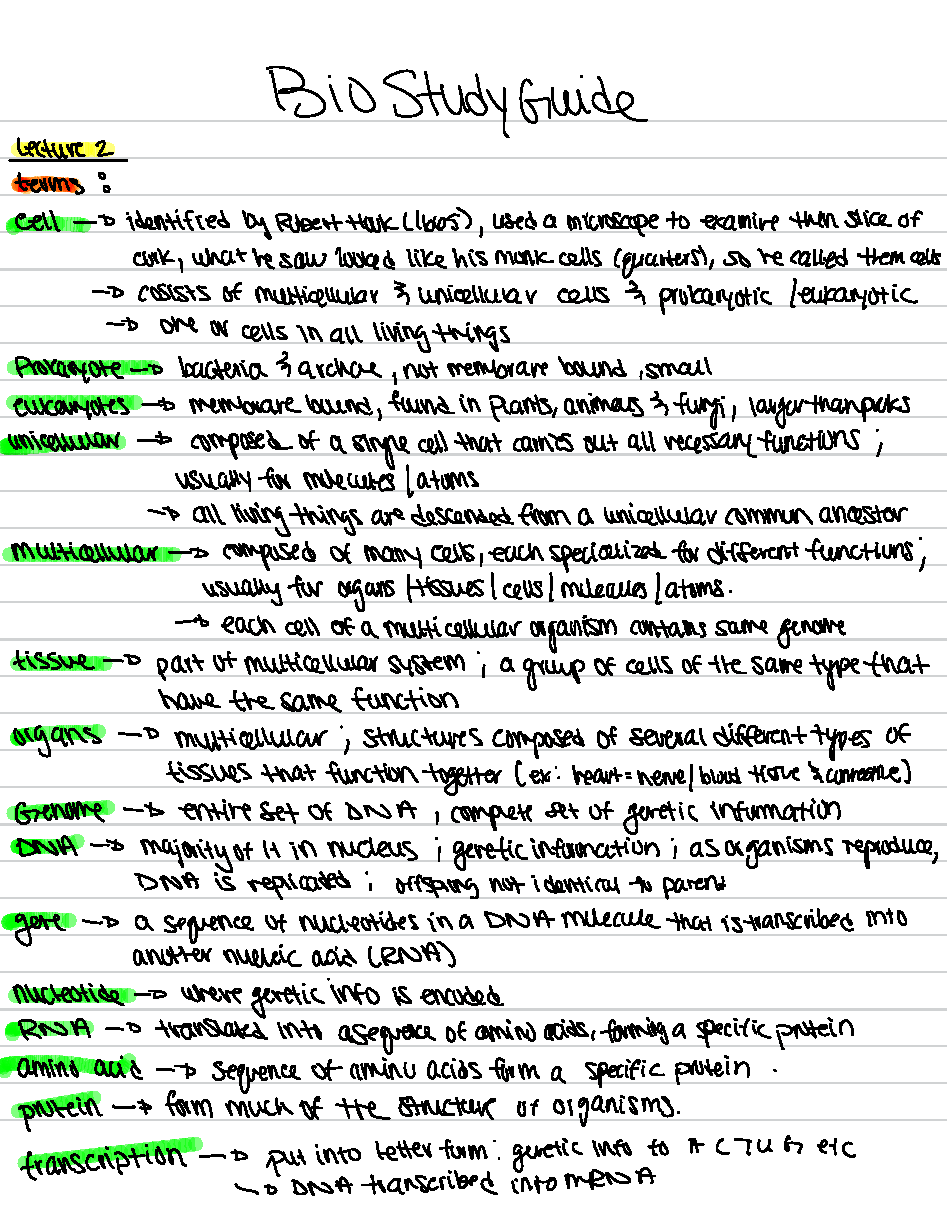 Bio Study Guide
Lecture 2
terms :
cell → identified by Robert Hook (1665), used a microscope to examine thin slice of
cork, what he saw looked like his monk cells (quarters), so he called them cells
→ cosists of multicellular & unicellular cells & prokaryotic / eukaryotic
→ one or cells in all living things
Prokaryote → bacteria & archae, not membrane bound, small
eukaryotes → membrane bound, found in plants, animals & fungi, larger than proks
unicellular → composed of a single cell that carries out all necessary functions ;
usually for molecules / atoms
→ all living things are descended from a unicellular common ancestor
multicellular → composed of many cells, each specialized for different functions ;
usually for organs / tissues / cells / molecules / atoms.
→ each cell of a multicellular organism contains same genome
tissue → part of multicellular system ; a group of cells of the same type that
have the same function
organs → multicellular ; structures composed of several different types of
tissues that function together (ex: heart = nerve / blood tissue &
Genome → entire set of DNA ; complete set of genetic information
DNA → majority of it in nucleus ; genetic information ; as organisms reproduce,
DNA is replicated ; offspring not identical to parent
gene → a sequence of nucleotides in a DNA molecule that is transcribed into
another nucleic acid (RNA)
nucleotide → where genetic info is encoded
RNA → translated into a sequence of amino acids, forming a specific protein
amino acid → sequence of amino acids form a specific protein .
protein → form much of the structure of organisms.
transcription → put into letter form : genetic info to A C T U G etc
→ DNA transcribed into mRNA